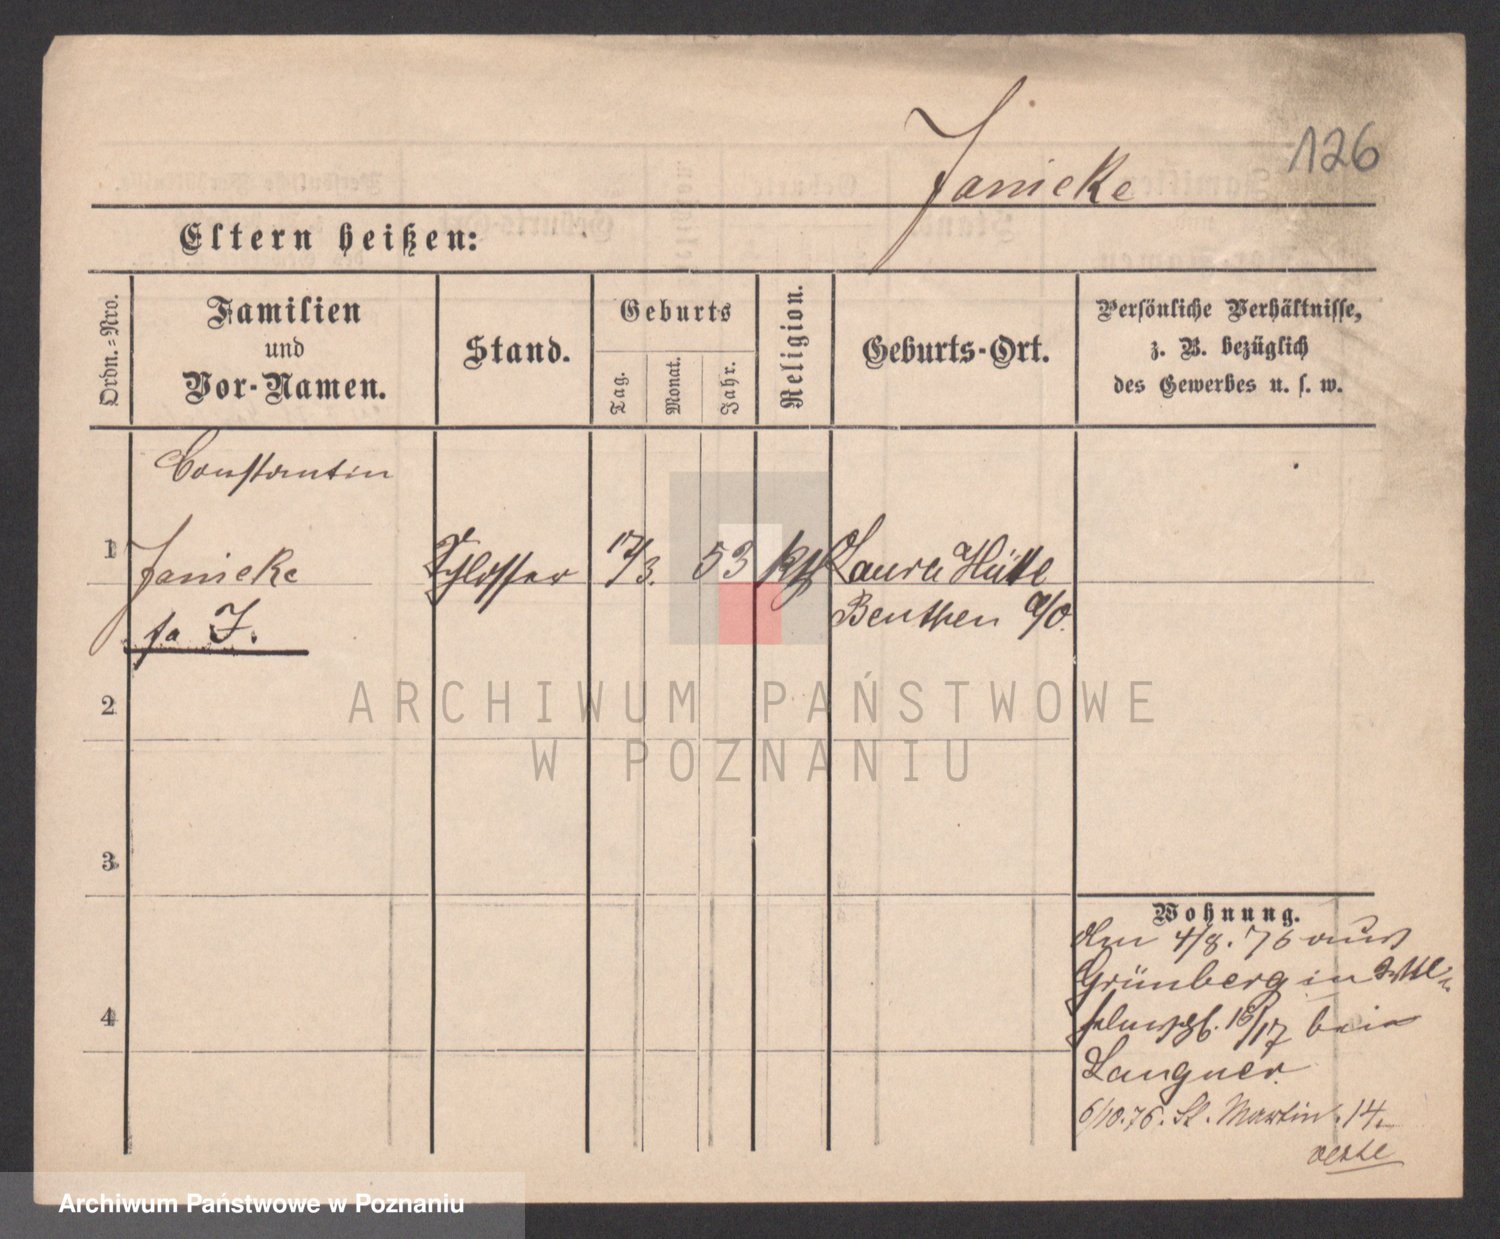 126
Janicke
Eltern heißen:
Ordn.=Nro.
Familien
und
Vor-Namen.
Stand.
Geburts
Tag.
Monat.
Jahr.
Religion.
Geburts-Ort.
Persönliche Verhältnisse,
z. B. bezüglich
des Gewerbes u. s. w.
Constantin
1 Janicke Schlosser 17/3. 53 kth Laura Hütte
Beuthen a/O.
J.
2
3
4
Wohnung.
den 4/8. 76 aus
Grünberg in Wil-
17 bei
Langner
6/10.76. St. Martin. 14.
ARCHIWUM PAŃSTWOWE
W POZNANIU
Archiwum Państwowe w Poznaniu